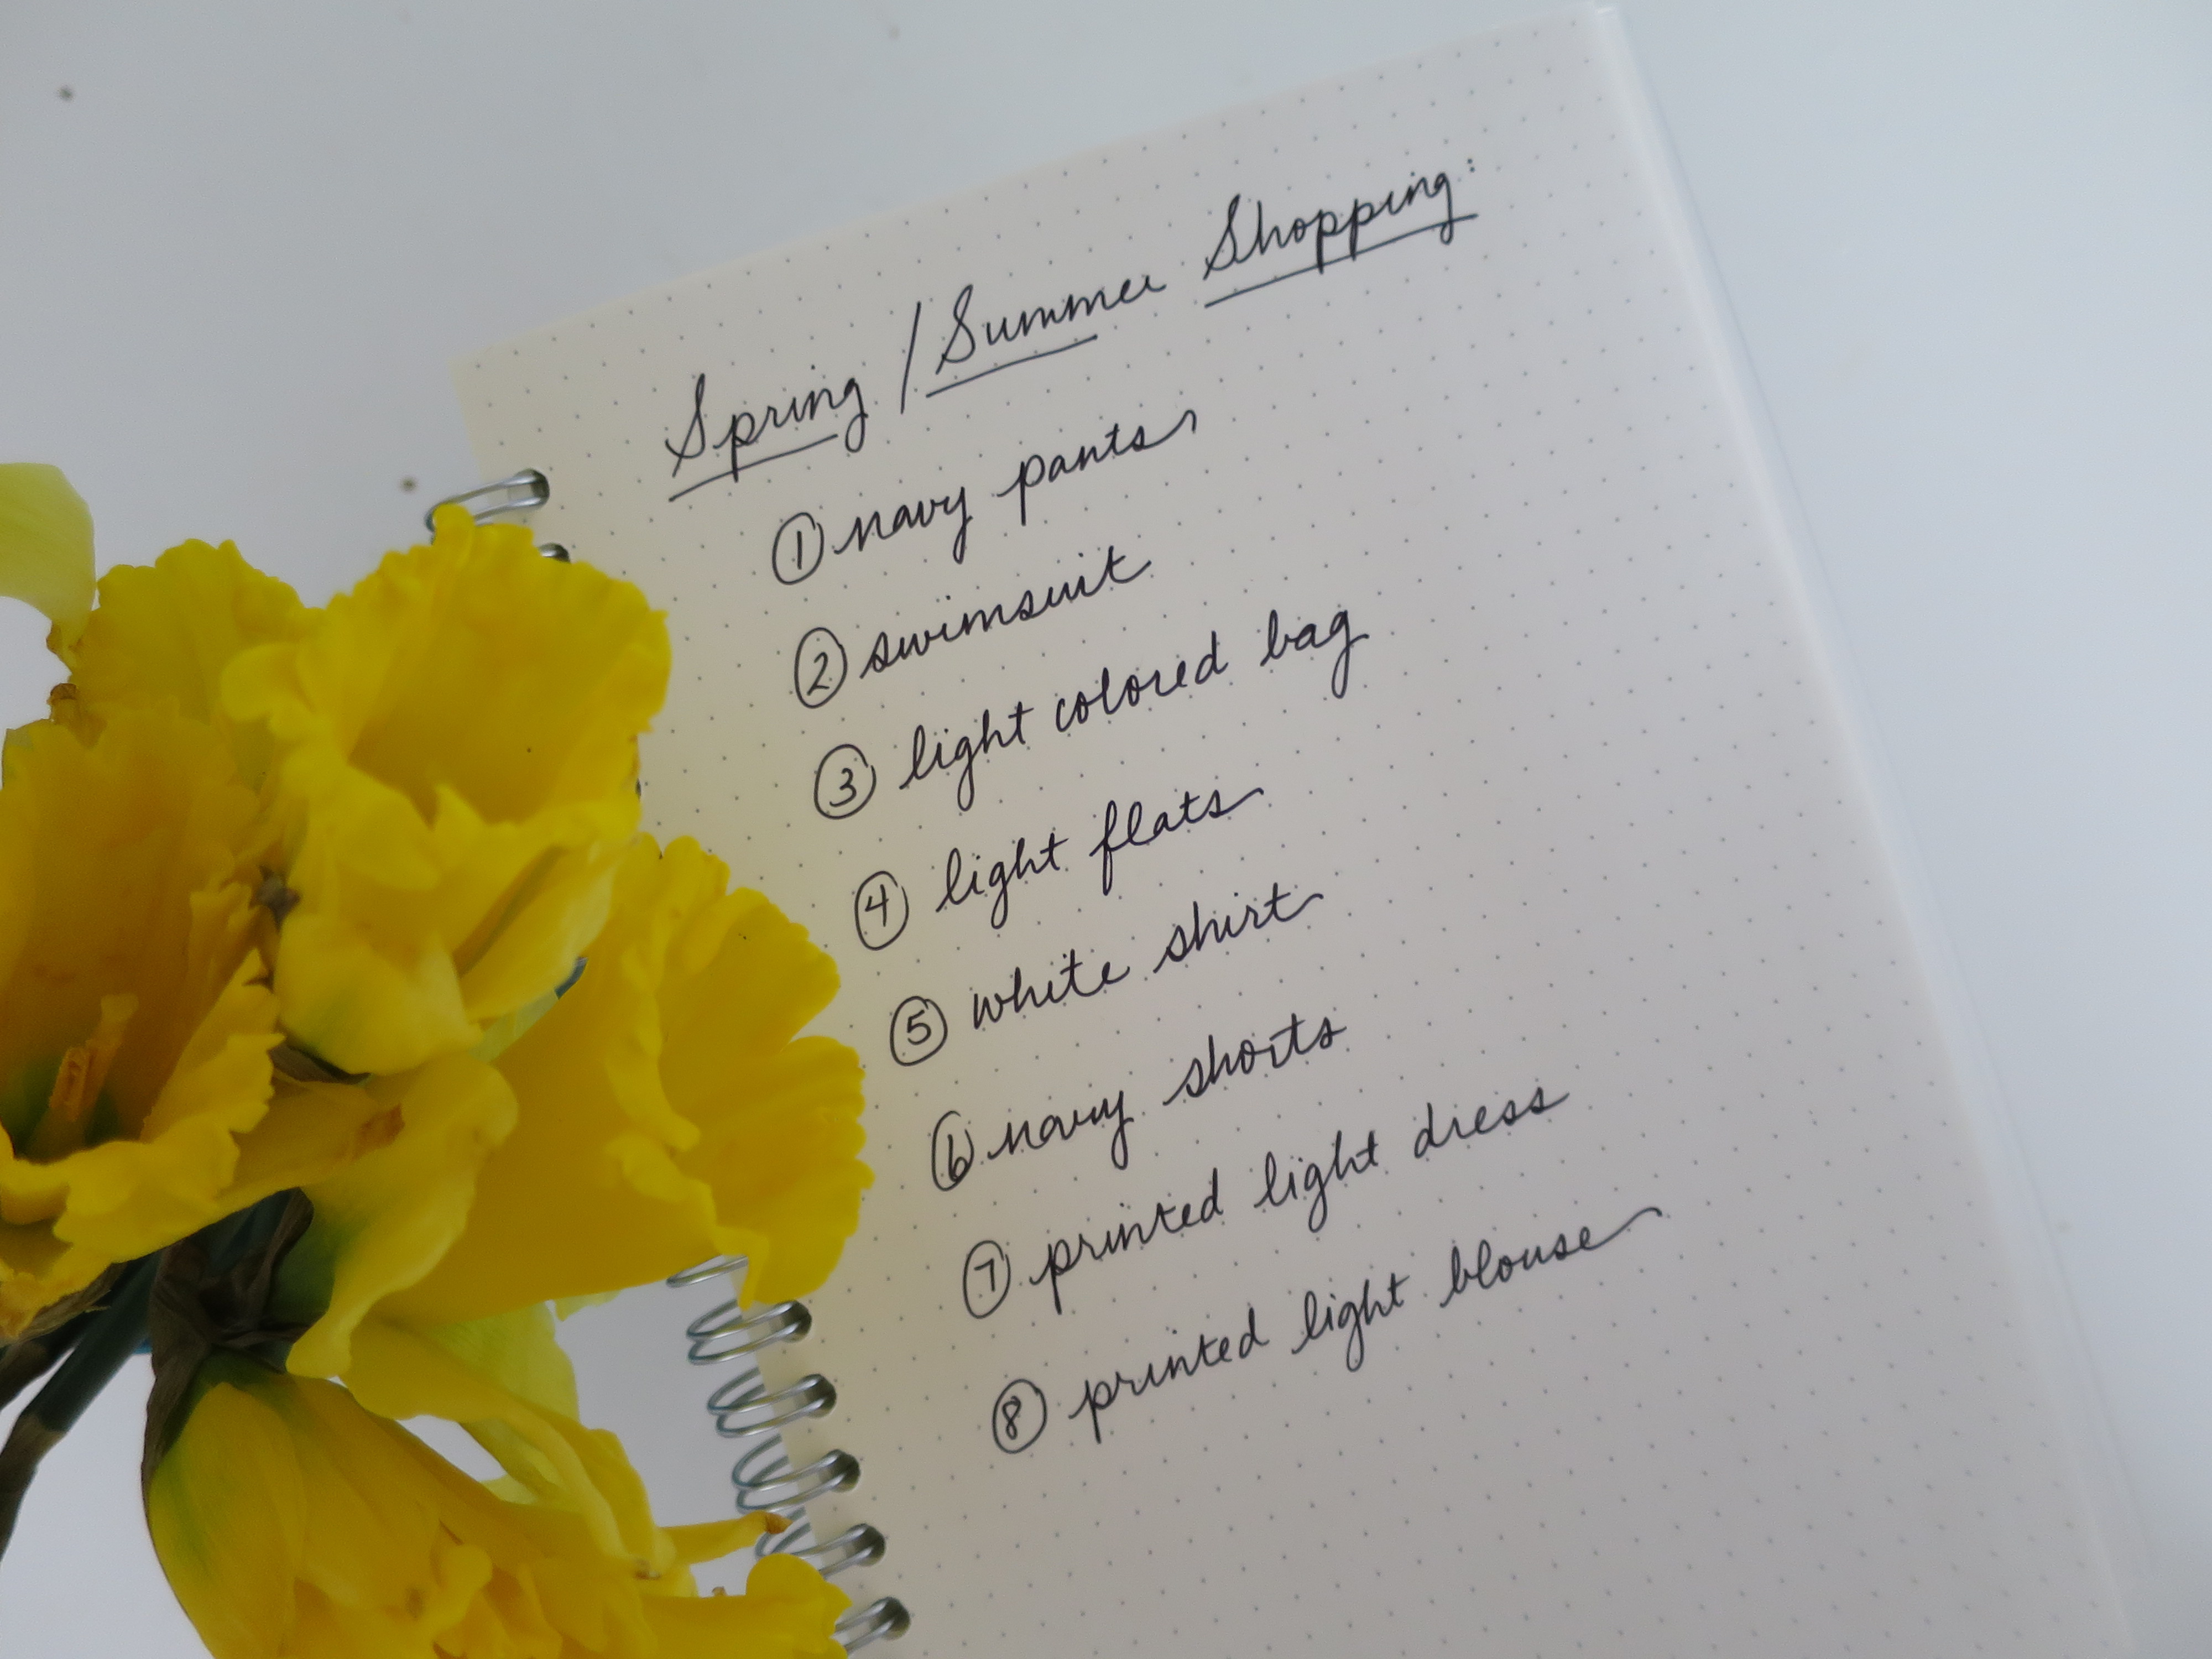 Spring / Summer Shopping:
① navy pants
② swimsuit
③ light colored bag
④ light flats
⑤ white shirt
⑥ navy shorts
⑦ printed light dress
⑧ printed light blouse